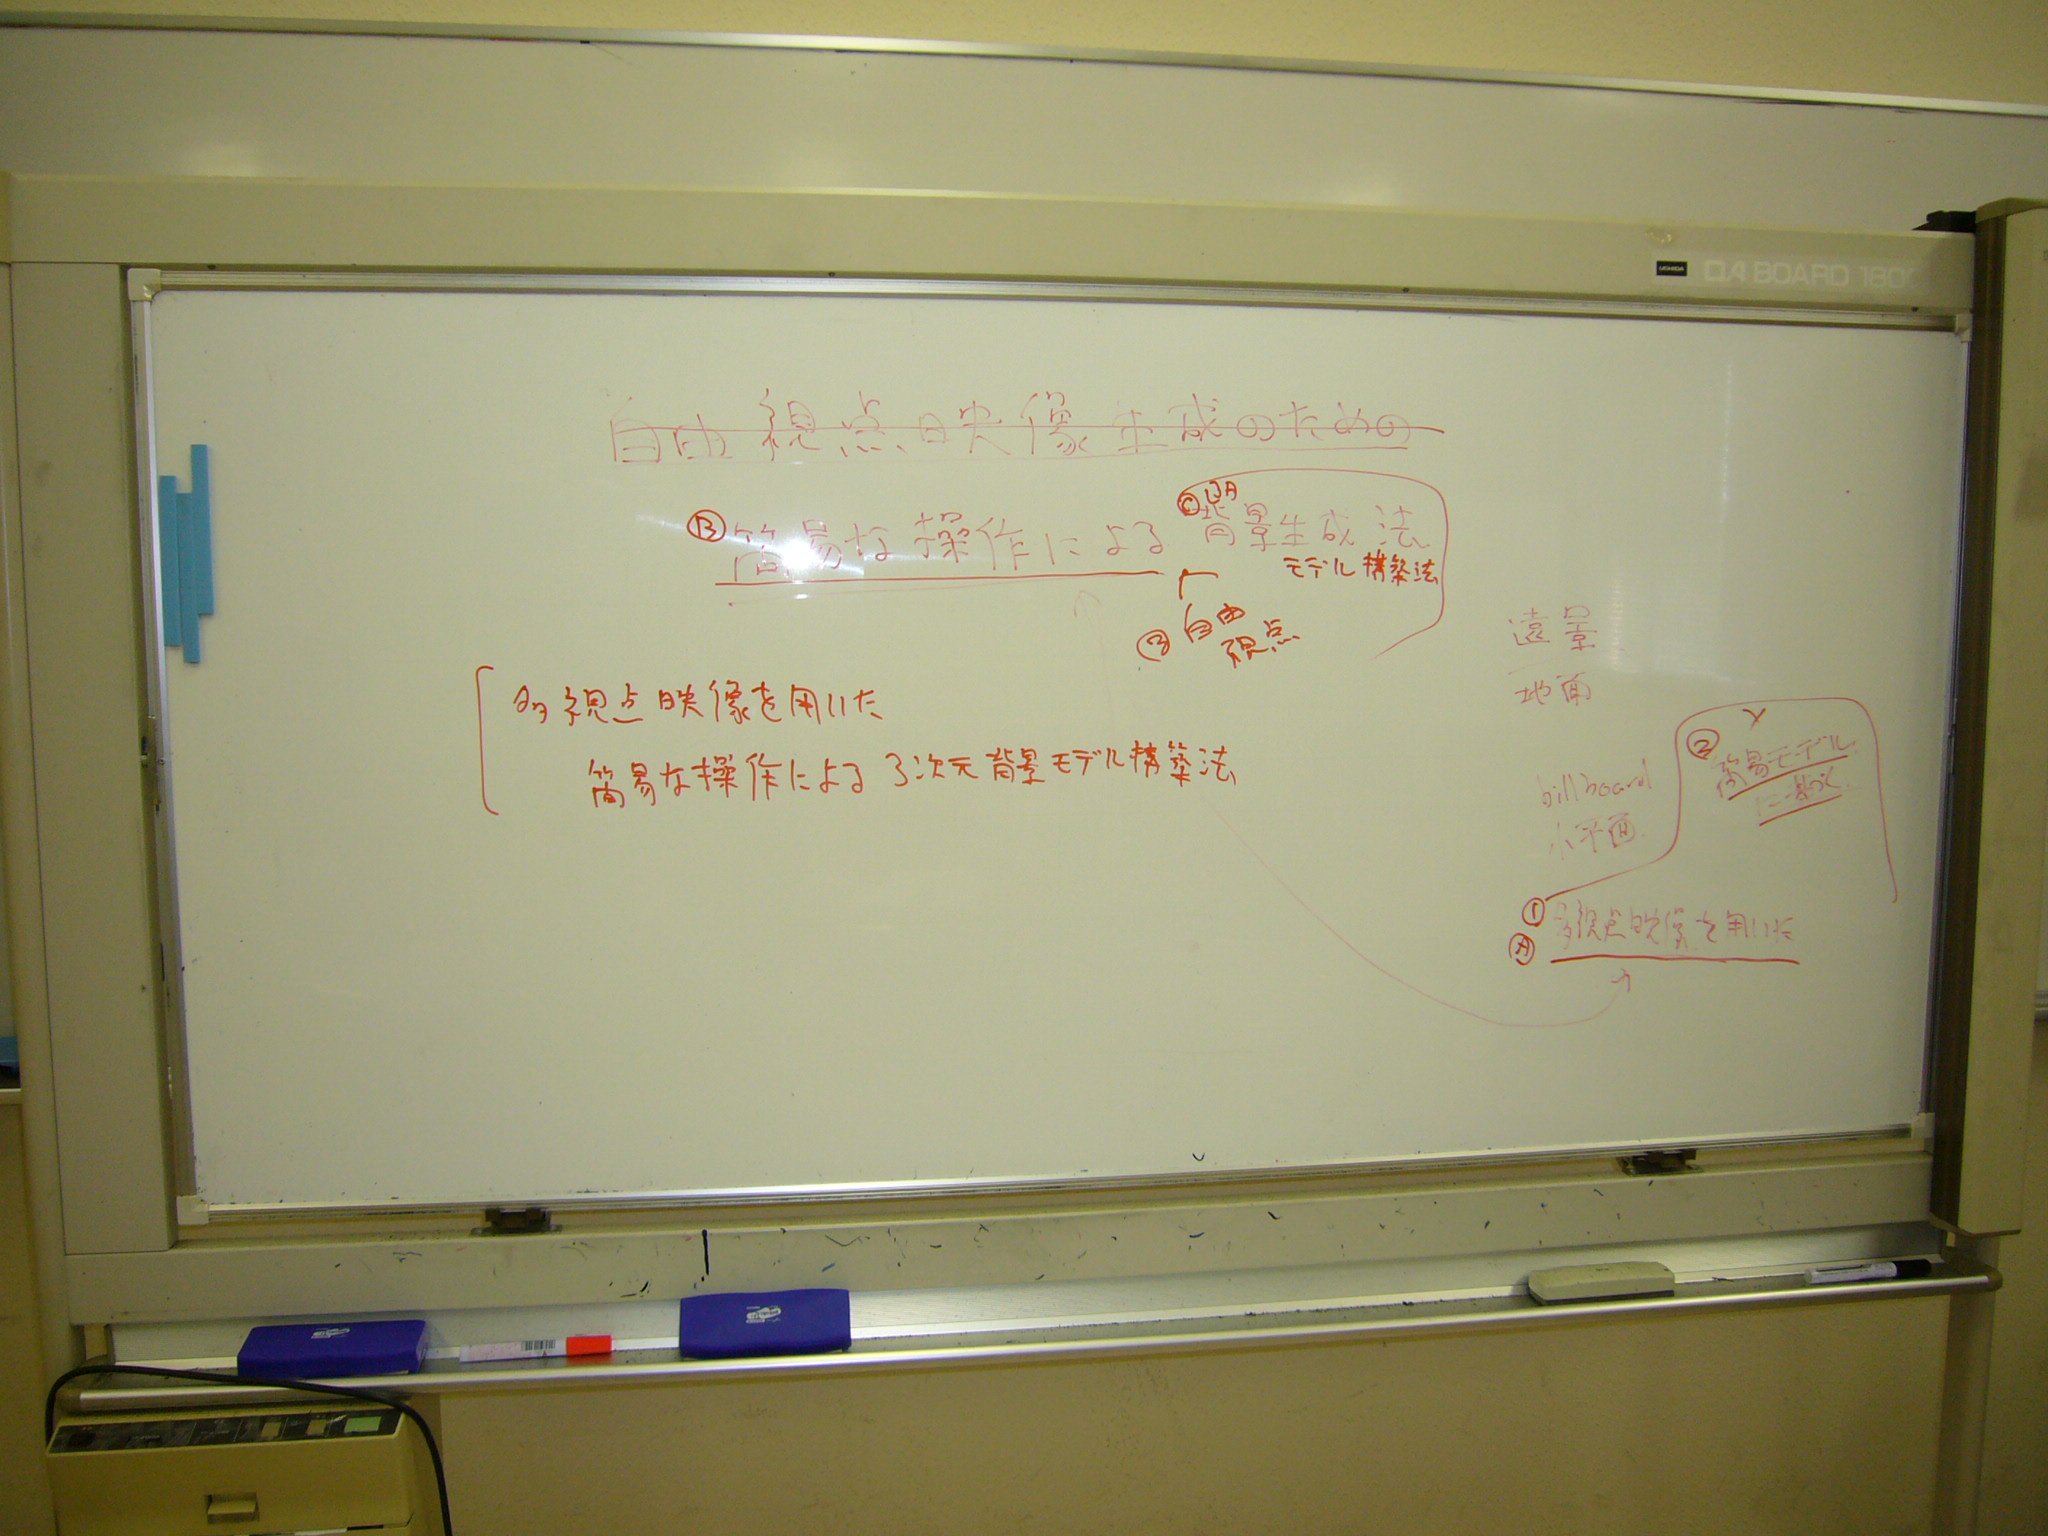 UCHIDA OA BOARD 180
自由視点映像生成のための
Ⓑ 簡易な操作による Ⓒ 背景生成法
モデル構築法
③ 自由
視点
遠景
地面
多視点映像を用いた
簡易な操作による3次元背景モデル構築法
② 簡易モデル
に基づく
billboard
小平面
①
Ⓐ 多視点映像を用いた